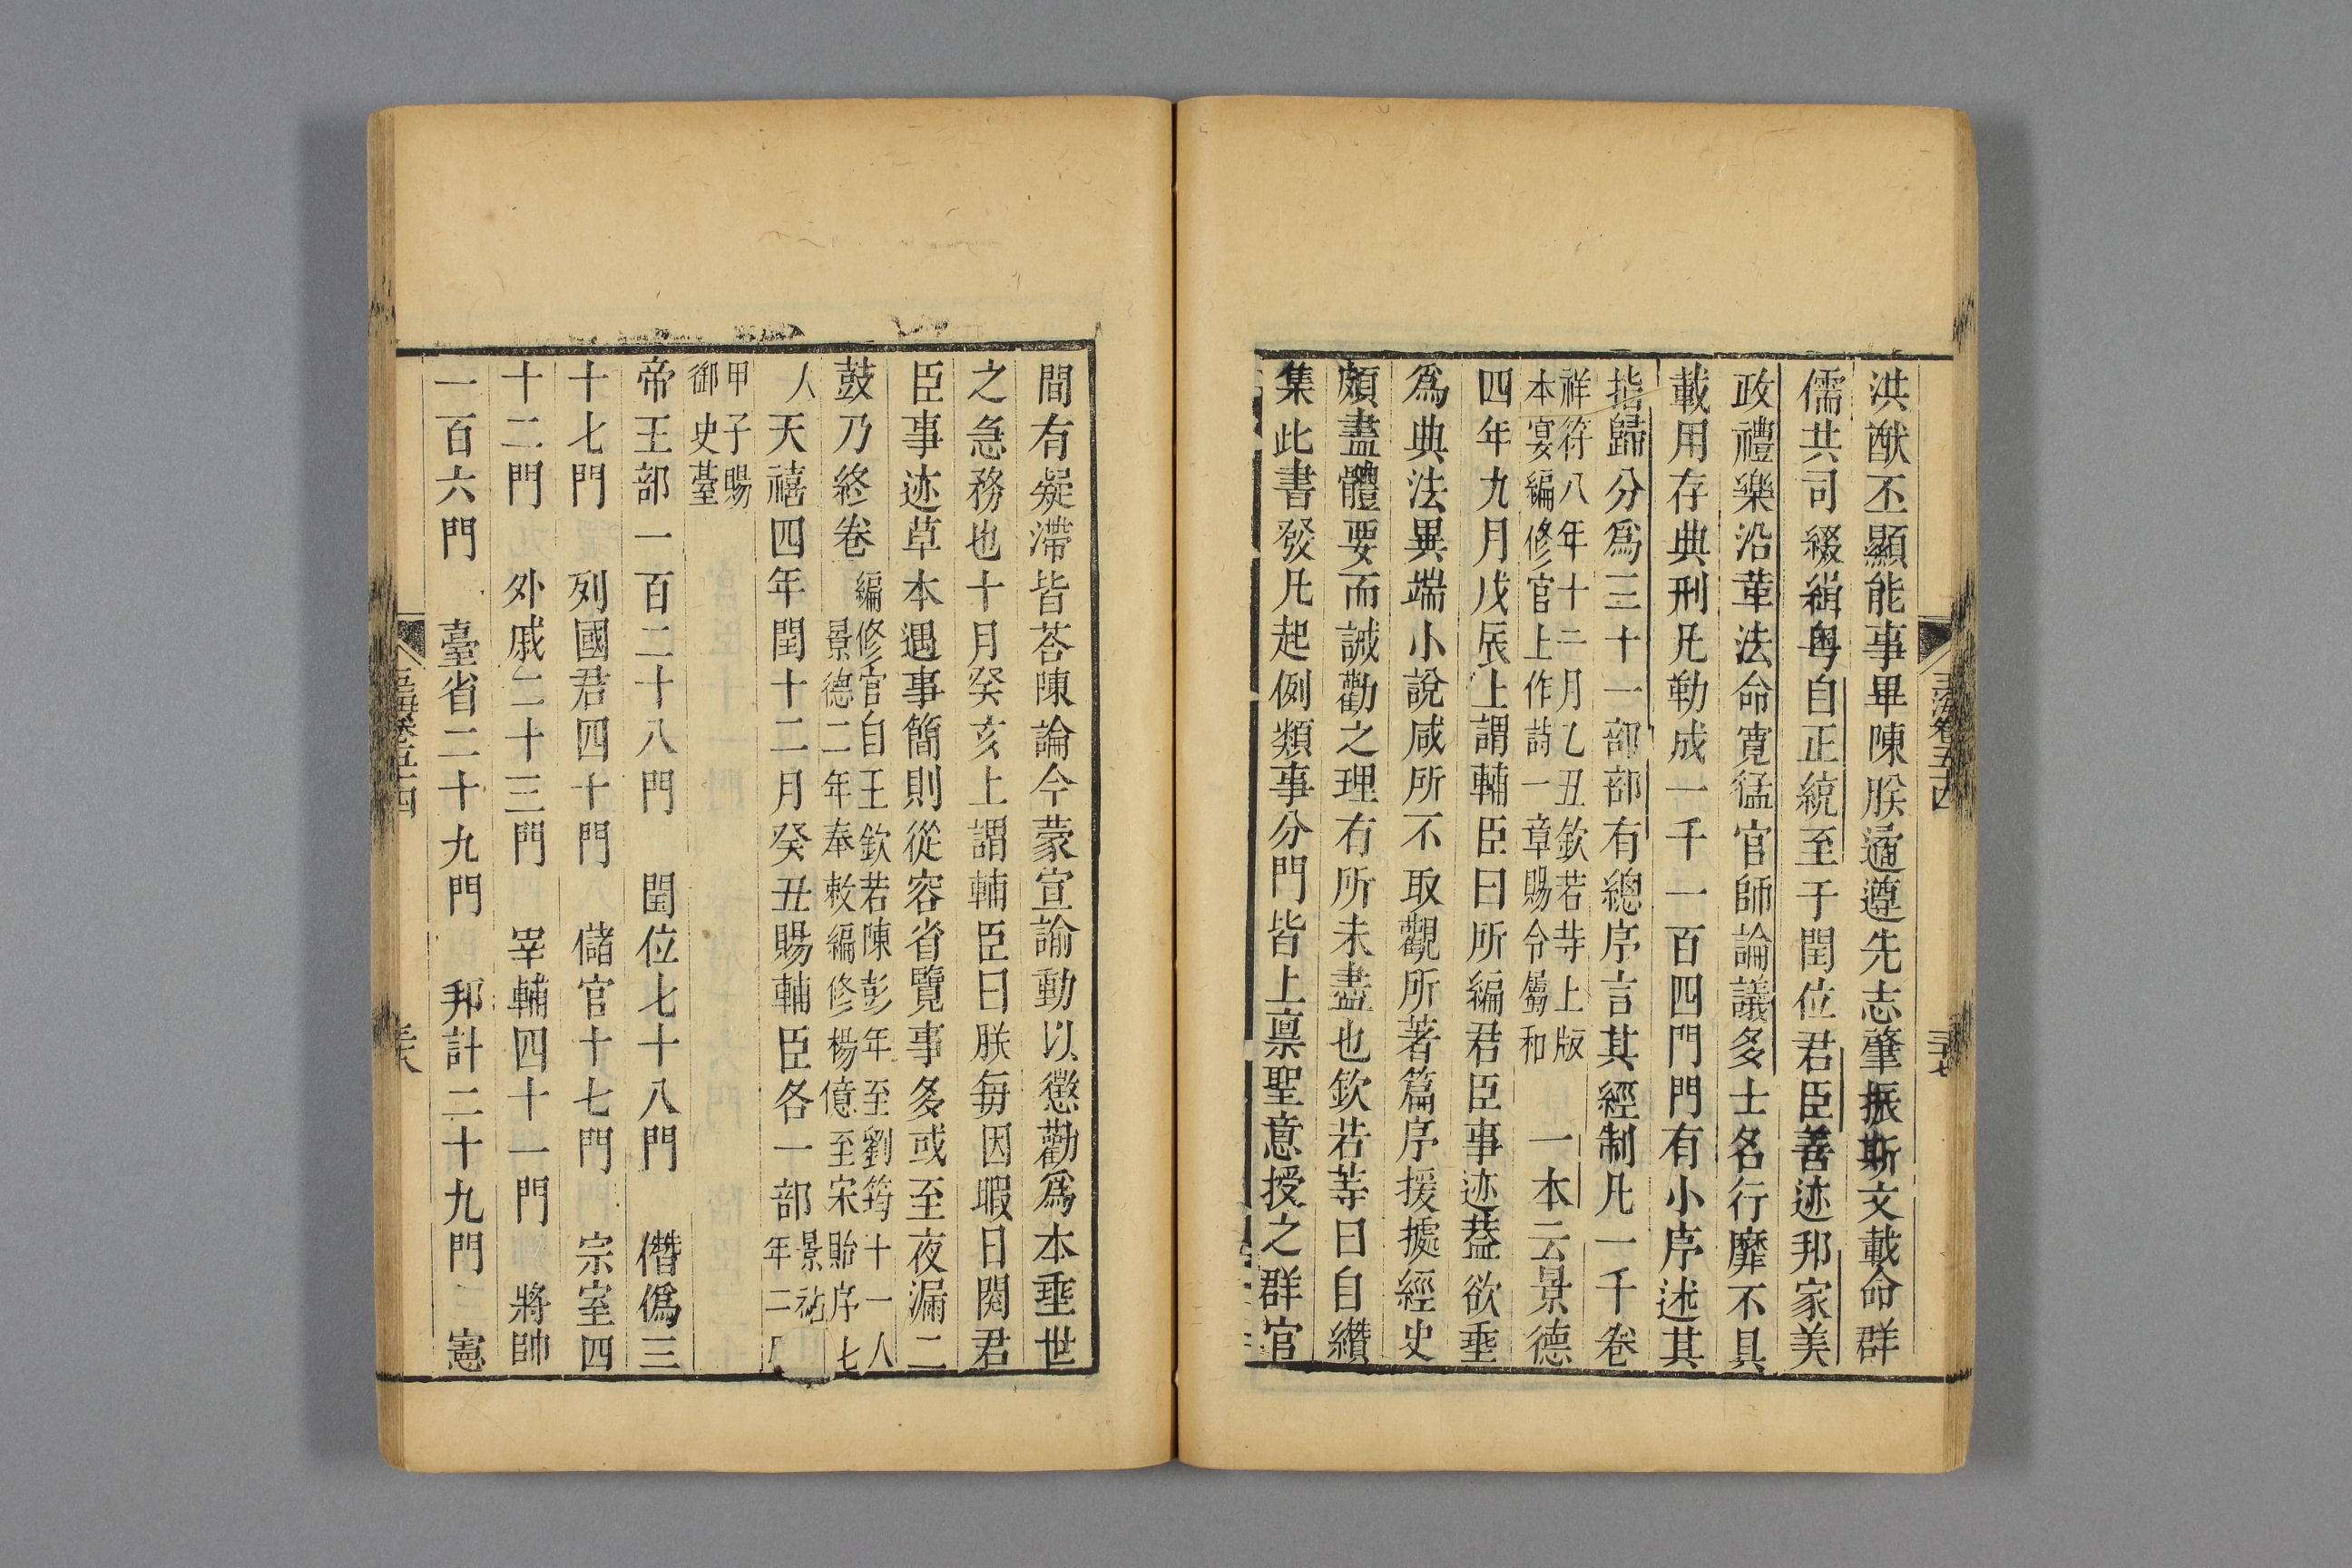 玉海卷五十四
三十七
洪猷丕顯能事畢陳朕遹遵先志肇振斯文載命群
儒共司綴緝粤自正統至于閏位君臣善迹邦家美
政禮樂沿革法命寛猛官師論議多士名行靡不具
載用存典刑凡勒成一千一百四門門有小序述其
指歸分爲三十一部部有總序言其經制凡一千卷
祥符八年十二月乙丑欽若等上版
本宴編修官上作詩一章賜令屬和
一本云景德
四年九月戊辰上謂輔臣曰所編君臣事迹葢欲垂
爲典法異端小說咸所不取觀所著篇序援據經史
頗盡體要而誡勸之理有所未盡也欽若等曰自纘
集此書發凡起例類事分門皆上禀聖意授之群官
間有凝滯皆荅陳論今蒙宣諭動以懲勸爲本垂世
之急務也十月癸亥上謂輔臣曰朕每因暇日閱君
臣事迹草本遇事簡則從容省覽事多或至夜漏二
鼓乃終卷
編修官自王欽若陳彭年至劉筠十一人
景德二年奉敕編修楊億至宋貽序七
人
天禧四年閏十二月癸丑賜輔臣各一部
景祐
年二月
甲子賜
御史臺
帝王部一百二十八門　閏位七十八門　僭僞三
十七門　列國君四十門　儲宫十七門　宗室四
十二門　外戚二十三門　宰輔四十一門　將帥
一百六門　臺省二十九門　邦計二十九門　憲
玉海卷五十四
三十八